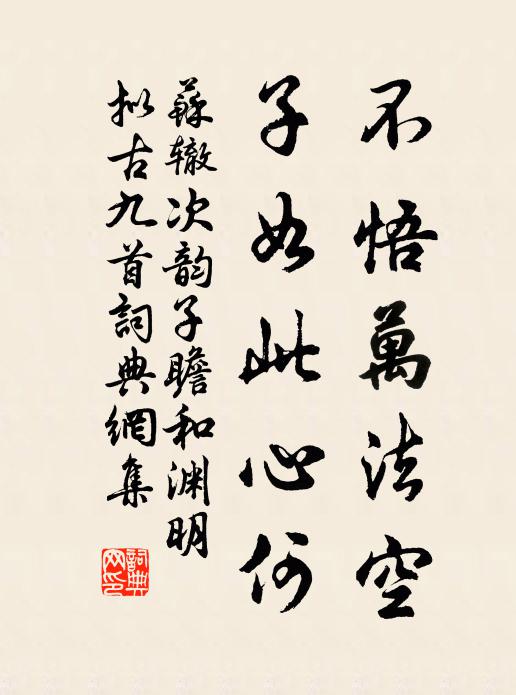 不悟萬法空
子如此心何
蘇辙次韵子瞻和渊明
拟古九首詞典網集
詞典网印